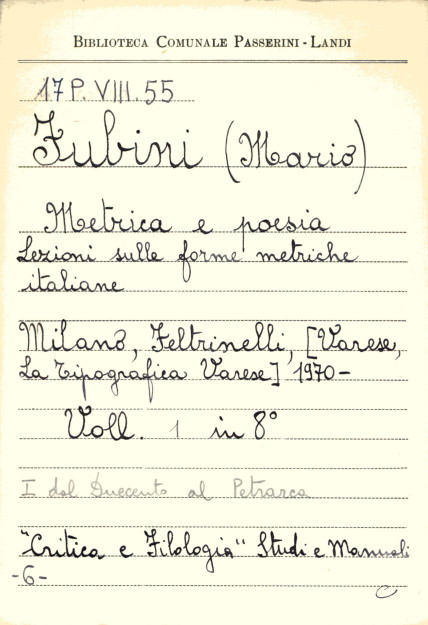 BIBLIOTECA COMUNALE PASSERINI - LANDI
17 P. VIII. 55
Fubini (Mario)
Metrica e poesia
Lezioni sulle forme metriche
italiane
Milano, Feltrinelli, [Varese,
La Tipografica Varese] 1970-
Voll. 1 in 8°
I dal Duecento al Petrarca
"Critica e Filologia" Studi e Manuali
-6-